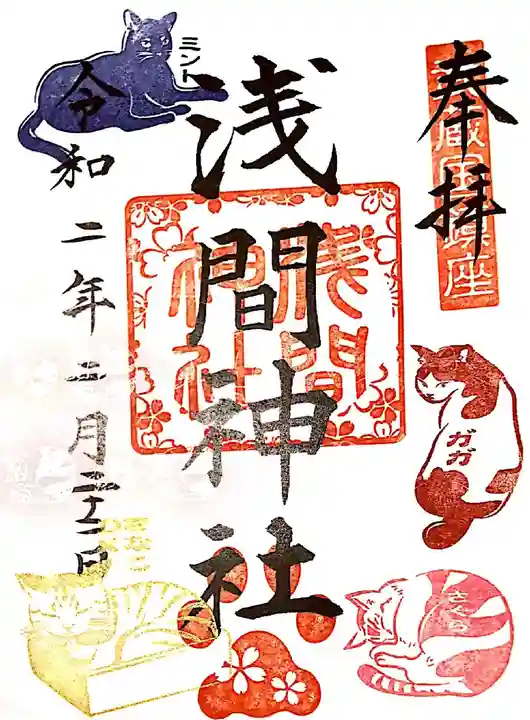 奉拝
浅間神社
浅間神社
令和二年二月二十二日
ミント
ガガ
さくら